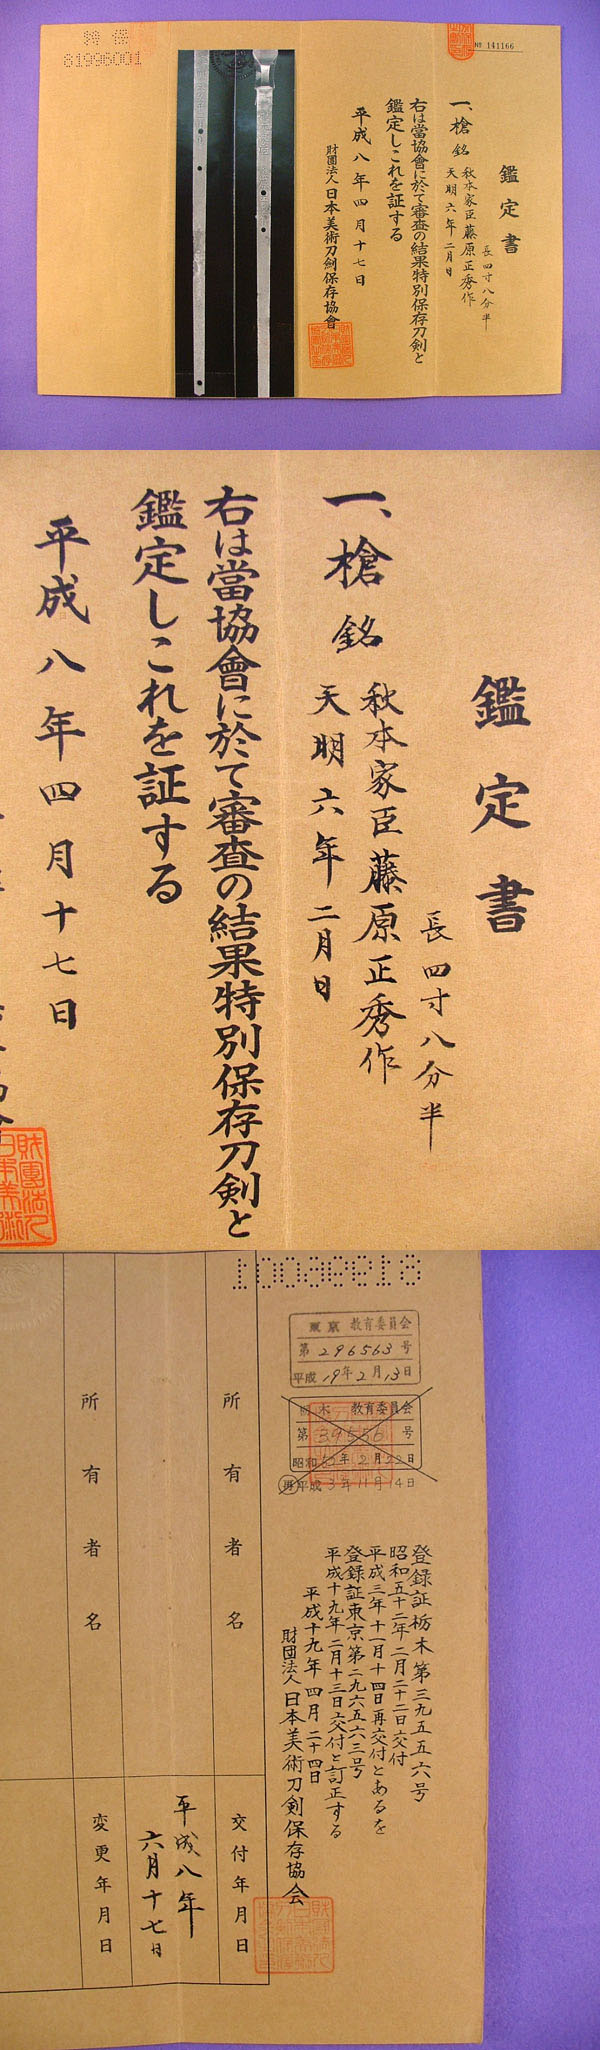 特保
81996001
№ 141166
鑑定書
長四寸八分半
一、槍 銘 秋本家臣藤原正秀作
天明六年二月日
右は當協會に於て審査の結果特別保存刀剣と
鑑定しこれを証する
平成八年四月十七日
財團法人日本美術刀剣保存協會
鑑定書
長四寸八分半
一、槍 銘 秋本家臣藤原正秀作
天明六年二月日
右は當協會に於て審査の結果特別保存刀剣と
鑑定しこれを証する
平成八年四月十七日
東京 教育委員会
第296563号
平成19年2月13日
栃木 教育委員会
第39556号
昭和52年2月22日
再平成3年11月14日
登録証栃木第三九五五六号
昭和五十二年二月二十二日交付
平成三年十一月十四日再交付とあるを
登録証東京第二九六五六三号
平成十九年二月十三日交付と訂正する
平成十九年四月二十四日
財団法人日本美術刀剣保存協会
所有者名
交付年月日
平成八年
六月十七日
所有者名
変更年月日